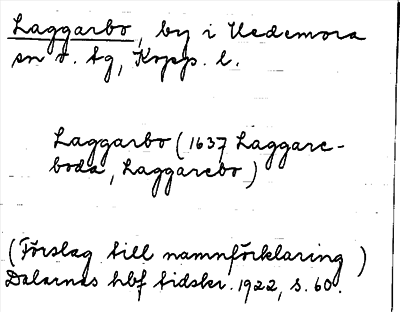 Laggarbo, by i Hedemora
sn o. tg, Kopp. l.
Laggarbo (1637 Laggare-
boda, Laggarebo)
(Förslag till namnförklaring)
Dalarnas hbf tidskr. 1922, s. 60.